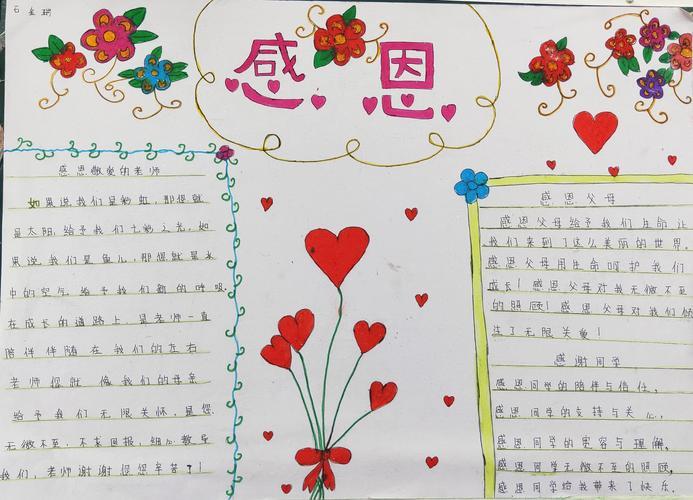 石金玥
感恩
感恩敬爱的老师
如果说我们是彩虹,那您就
是太阳,给予我们七彩之光,如
果说我们是鱼儿,那您就是水
中的空气 给予我们新的呼吸
在成长的道路上,是老师一直
陪伴伴随在我们的左右
老师您就像我们的母亲
给予我们无限关怀,是您
无微不至,不求回报,细心教导
我们,老师谢谢您您辛苦了!
感恩父母
感恩父母给予我们生命让
我们来到了这么美丽的世界。
感恩父母用生命呵护我们
成长!感恩父母对我无微不至
的照顾!感恩父母对我们倾
注了无限关爱!
感谢同学
感恩同学的陪伴与信任。
感恩同学的支持与关心。
感恩同学的宽容与理解。
感恩同学无微不至的照顾,
感恩同学给我带来了快乐。